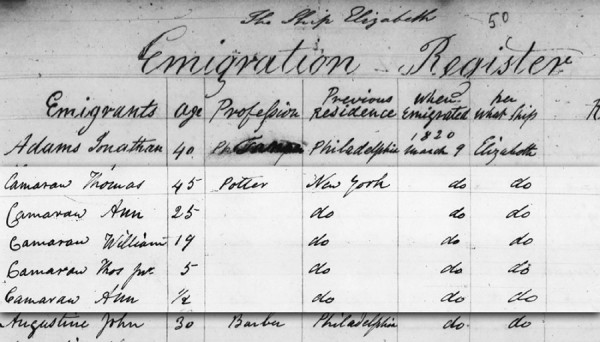 The Ship Elizabeth 50
Emigration Register
Emigrants age Profession Previous residence When Emigrated per what ship
1820
Adams Jonathan 40 Philadelphia March 9 Elizabeth
Camaran Thomas 45 Potter New York do do
Camaran Ann 25 do do do
Camaran William 19 do do do
Camaran Thos Jnr. 5 do do do
Camaran Ann ½ do do do
Augustine John 30 Barber Philadelphia do do